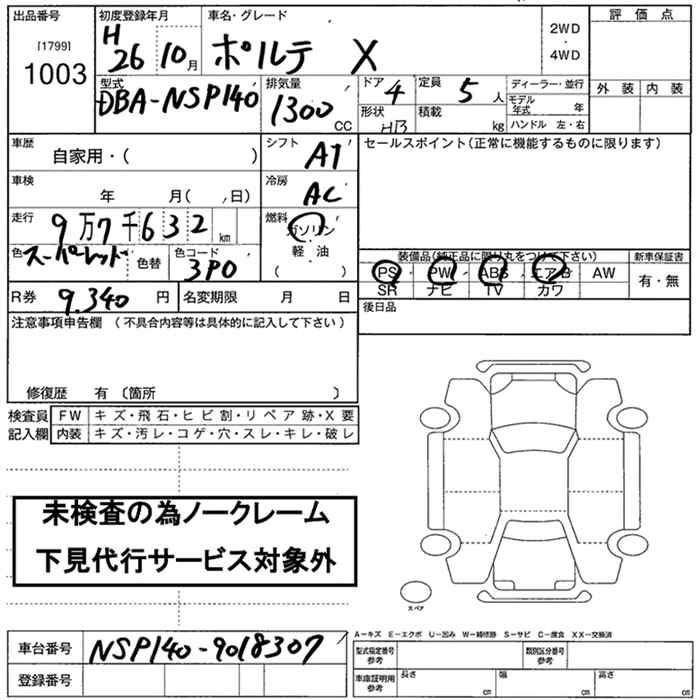 出品番号 初度登録年月 車名・グレード 評価点
[1799] 1003 H26 10月 ポルテ X 2WD・4WD
型式 排気量 ドア 4 定員 5人 ディーラー・並行 外装 内装
DBA-NSP140 1300 CC 形状 HB 積載 kg モデル年式 年
ハンドル 左・右
車歴 自家用・( ) シフト AT セールスポイント(正常に機能するものに限ります)
車検 年 月( , 日) 冷房 AC
走行 9万7千632 km 燃料 ガソリン・軽油 ( )
色 スーパーレッド 色替 色コード 3P0 装備品(純正品に限り丸をつけて下さい) 新車保証書
PS PW ABS エアB AW 有・無
SR ナビ TV カワ
R券 9,340 円 名変期限 月 日 後日品
注意事項申告欄 (不具合内容等は具体的に記入して下さい)
修復歴 有 〔箇所 〕
検査員 FW キズ・飛石・ヒビ割・リペア跡・X要
記入欄 内装 キズ・汚レ・コゲ・穴・スレ・キレ・破レ
未検査の為ノークレーム
下見代行サービス対象外
スペア
A−キズ E−エクボ U−凹み W−補修跡 S−サビ C−腐食 XX−交換済
車台番号 NSP140-9018307 型式指定番号 参考 類別区分番号 参考
登録番号 車庫証明用 参考 長さ cm 幅 cm 高さ cm